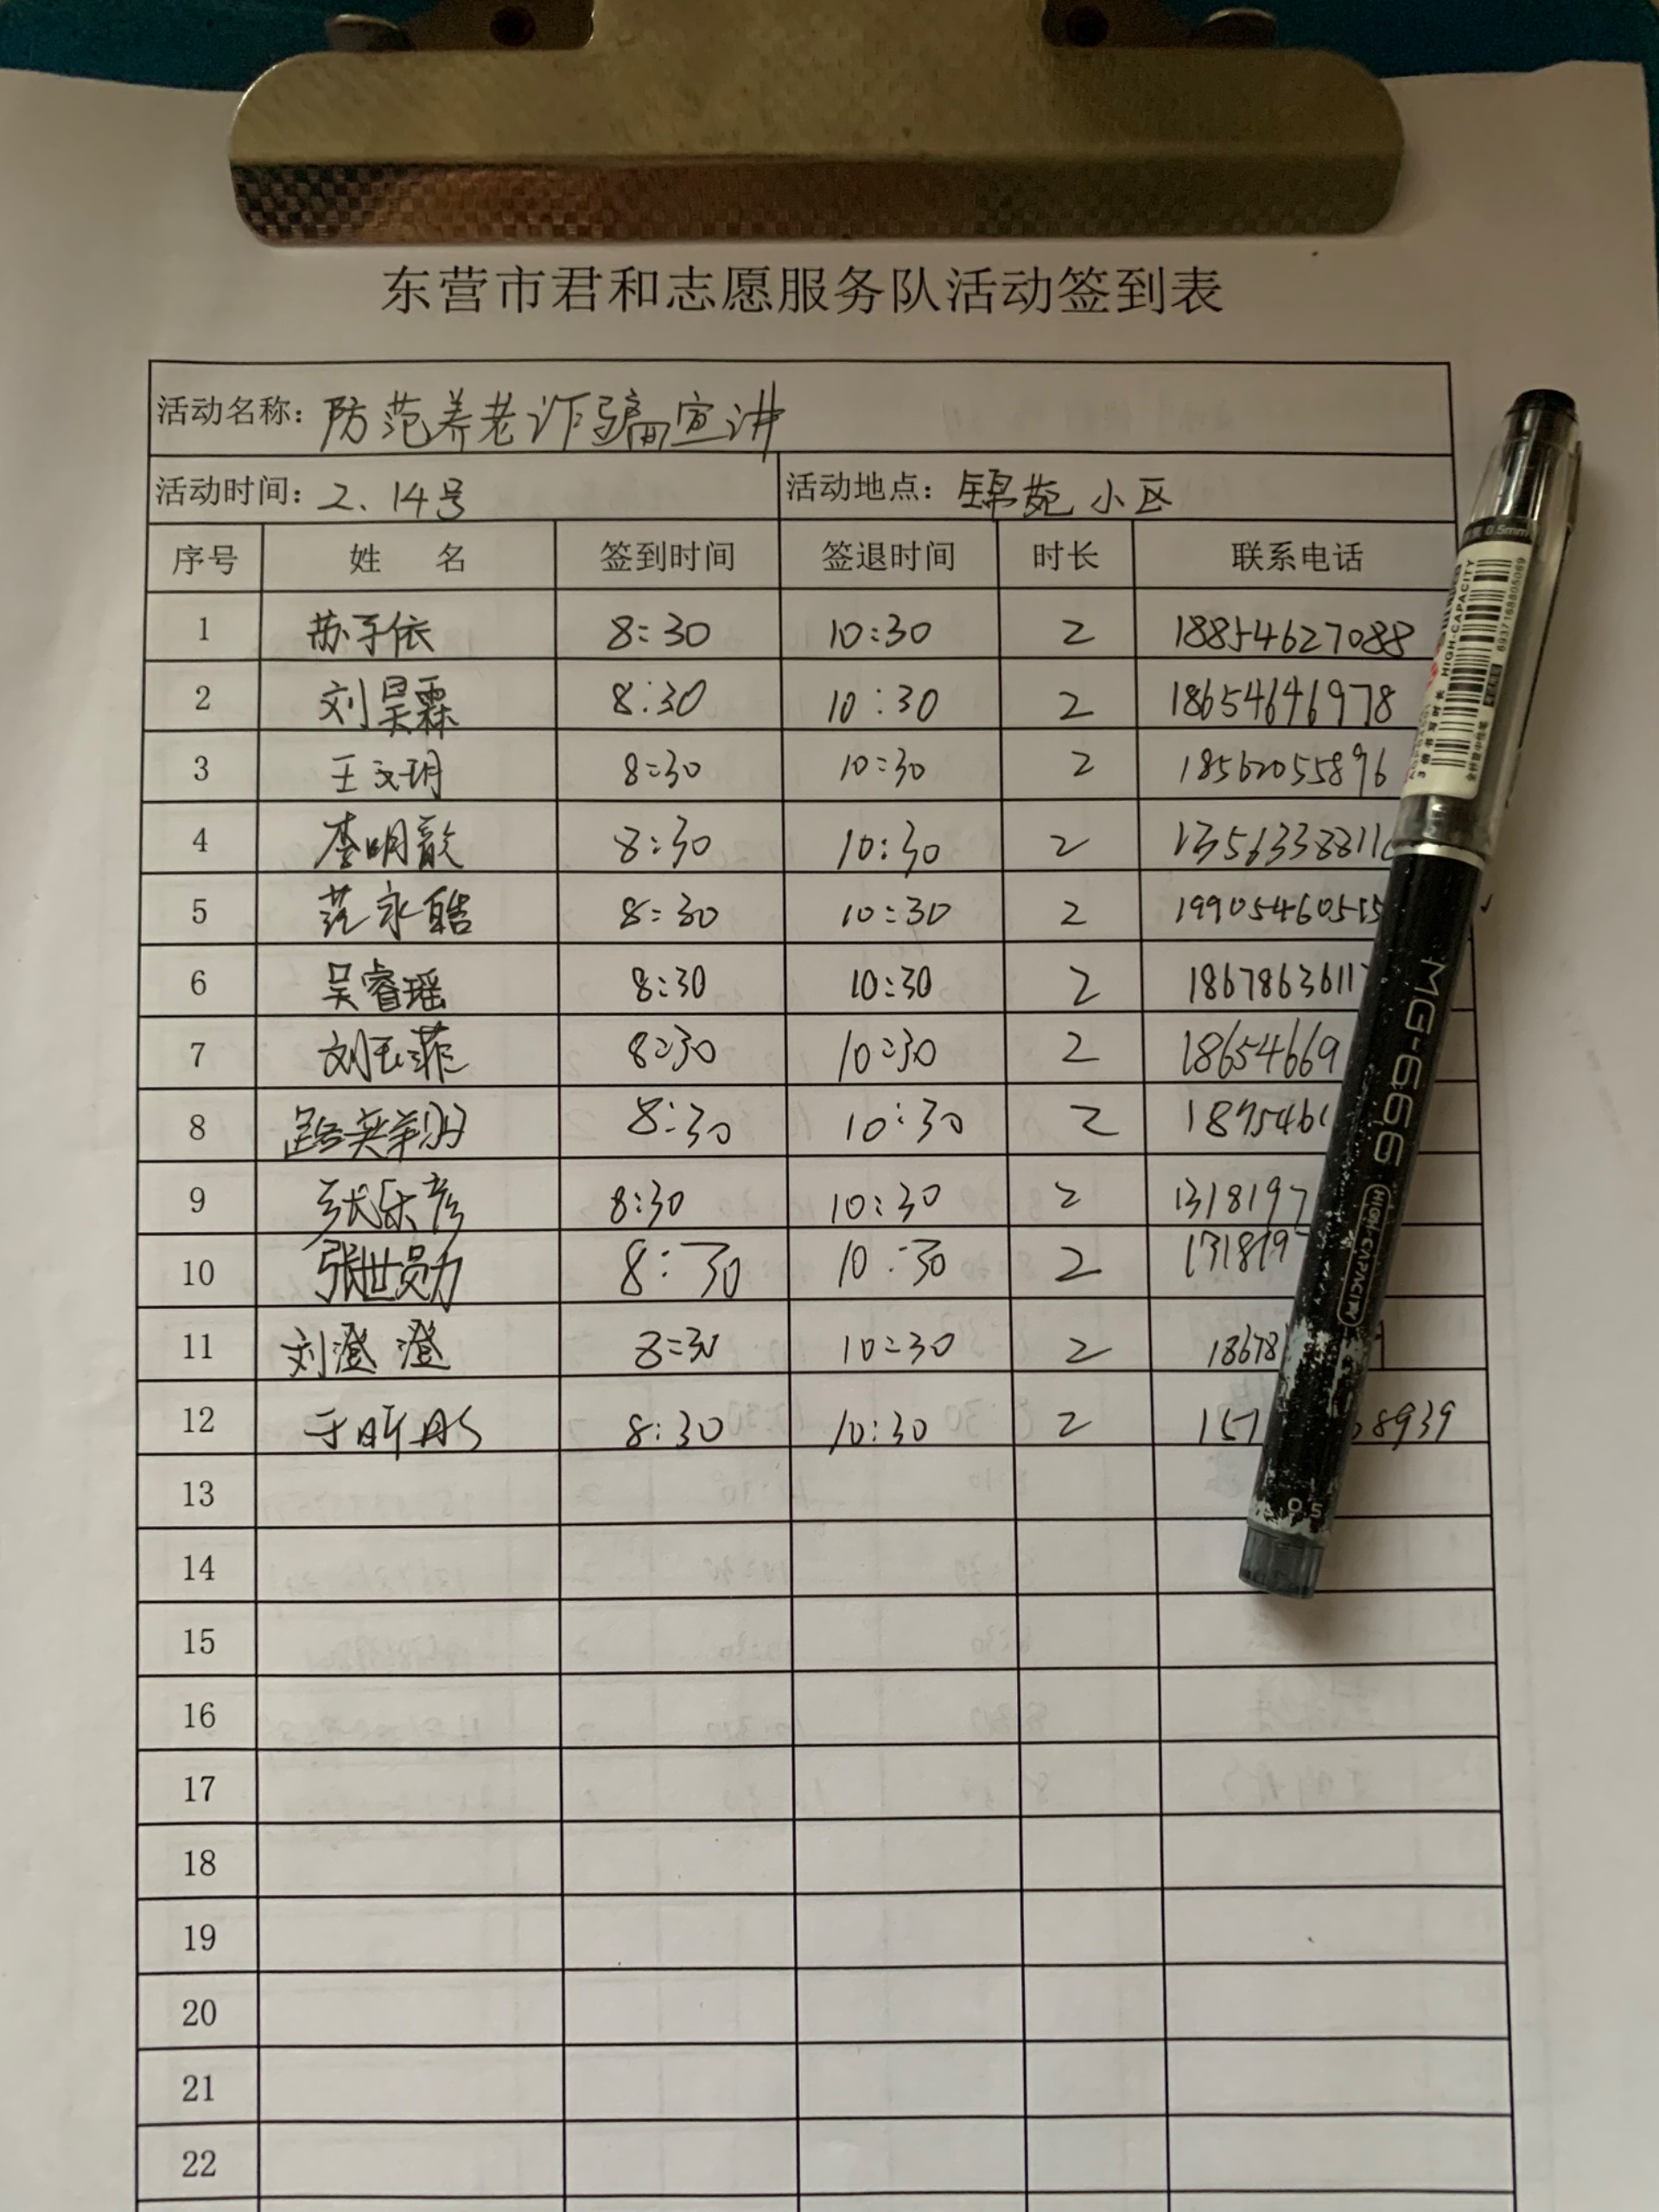 东营市君和志愿服务队活动签到表
活动名称：防范养老诈骗宣讲
活动时间：2、14号 活动地点：锦苑小区
序号 姓 名 签到时间 签退时间 时长 联系电话
1 苏子依 8:30 10:30 2 18854627088
2 刘昊霖 8:30 10:30 2 18654646978
3 王文玥 8:30 10:30 2 18562055896
4 李明歆 8:30 10:30 2 1356338811
5 范永皓 8:30 10:30 2 19905460515
6 吴睿瑶 8:30 10:30 2 1867863611
7 刘玉菲 8:30 10:30 2 18654669
8 路英 8:30 10:30 2 1875461
9 张乐彦 8:30 10:30 2 1318197
10 张世勋 8:30 10:30 2 131819
11 刘澄澄 8:30 10:30 2 18678
12 于昕彤 8:30 10:30 2 157 8939
13
14
15
16
17
18
19
20
21
22
0.5mm
HIGH-CAPACITY
6937168805069
MG-666
HIGH-CAPACITY
0.5